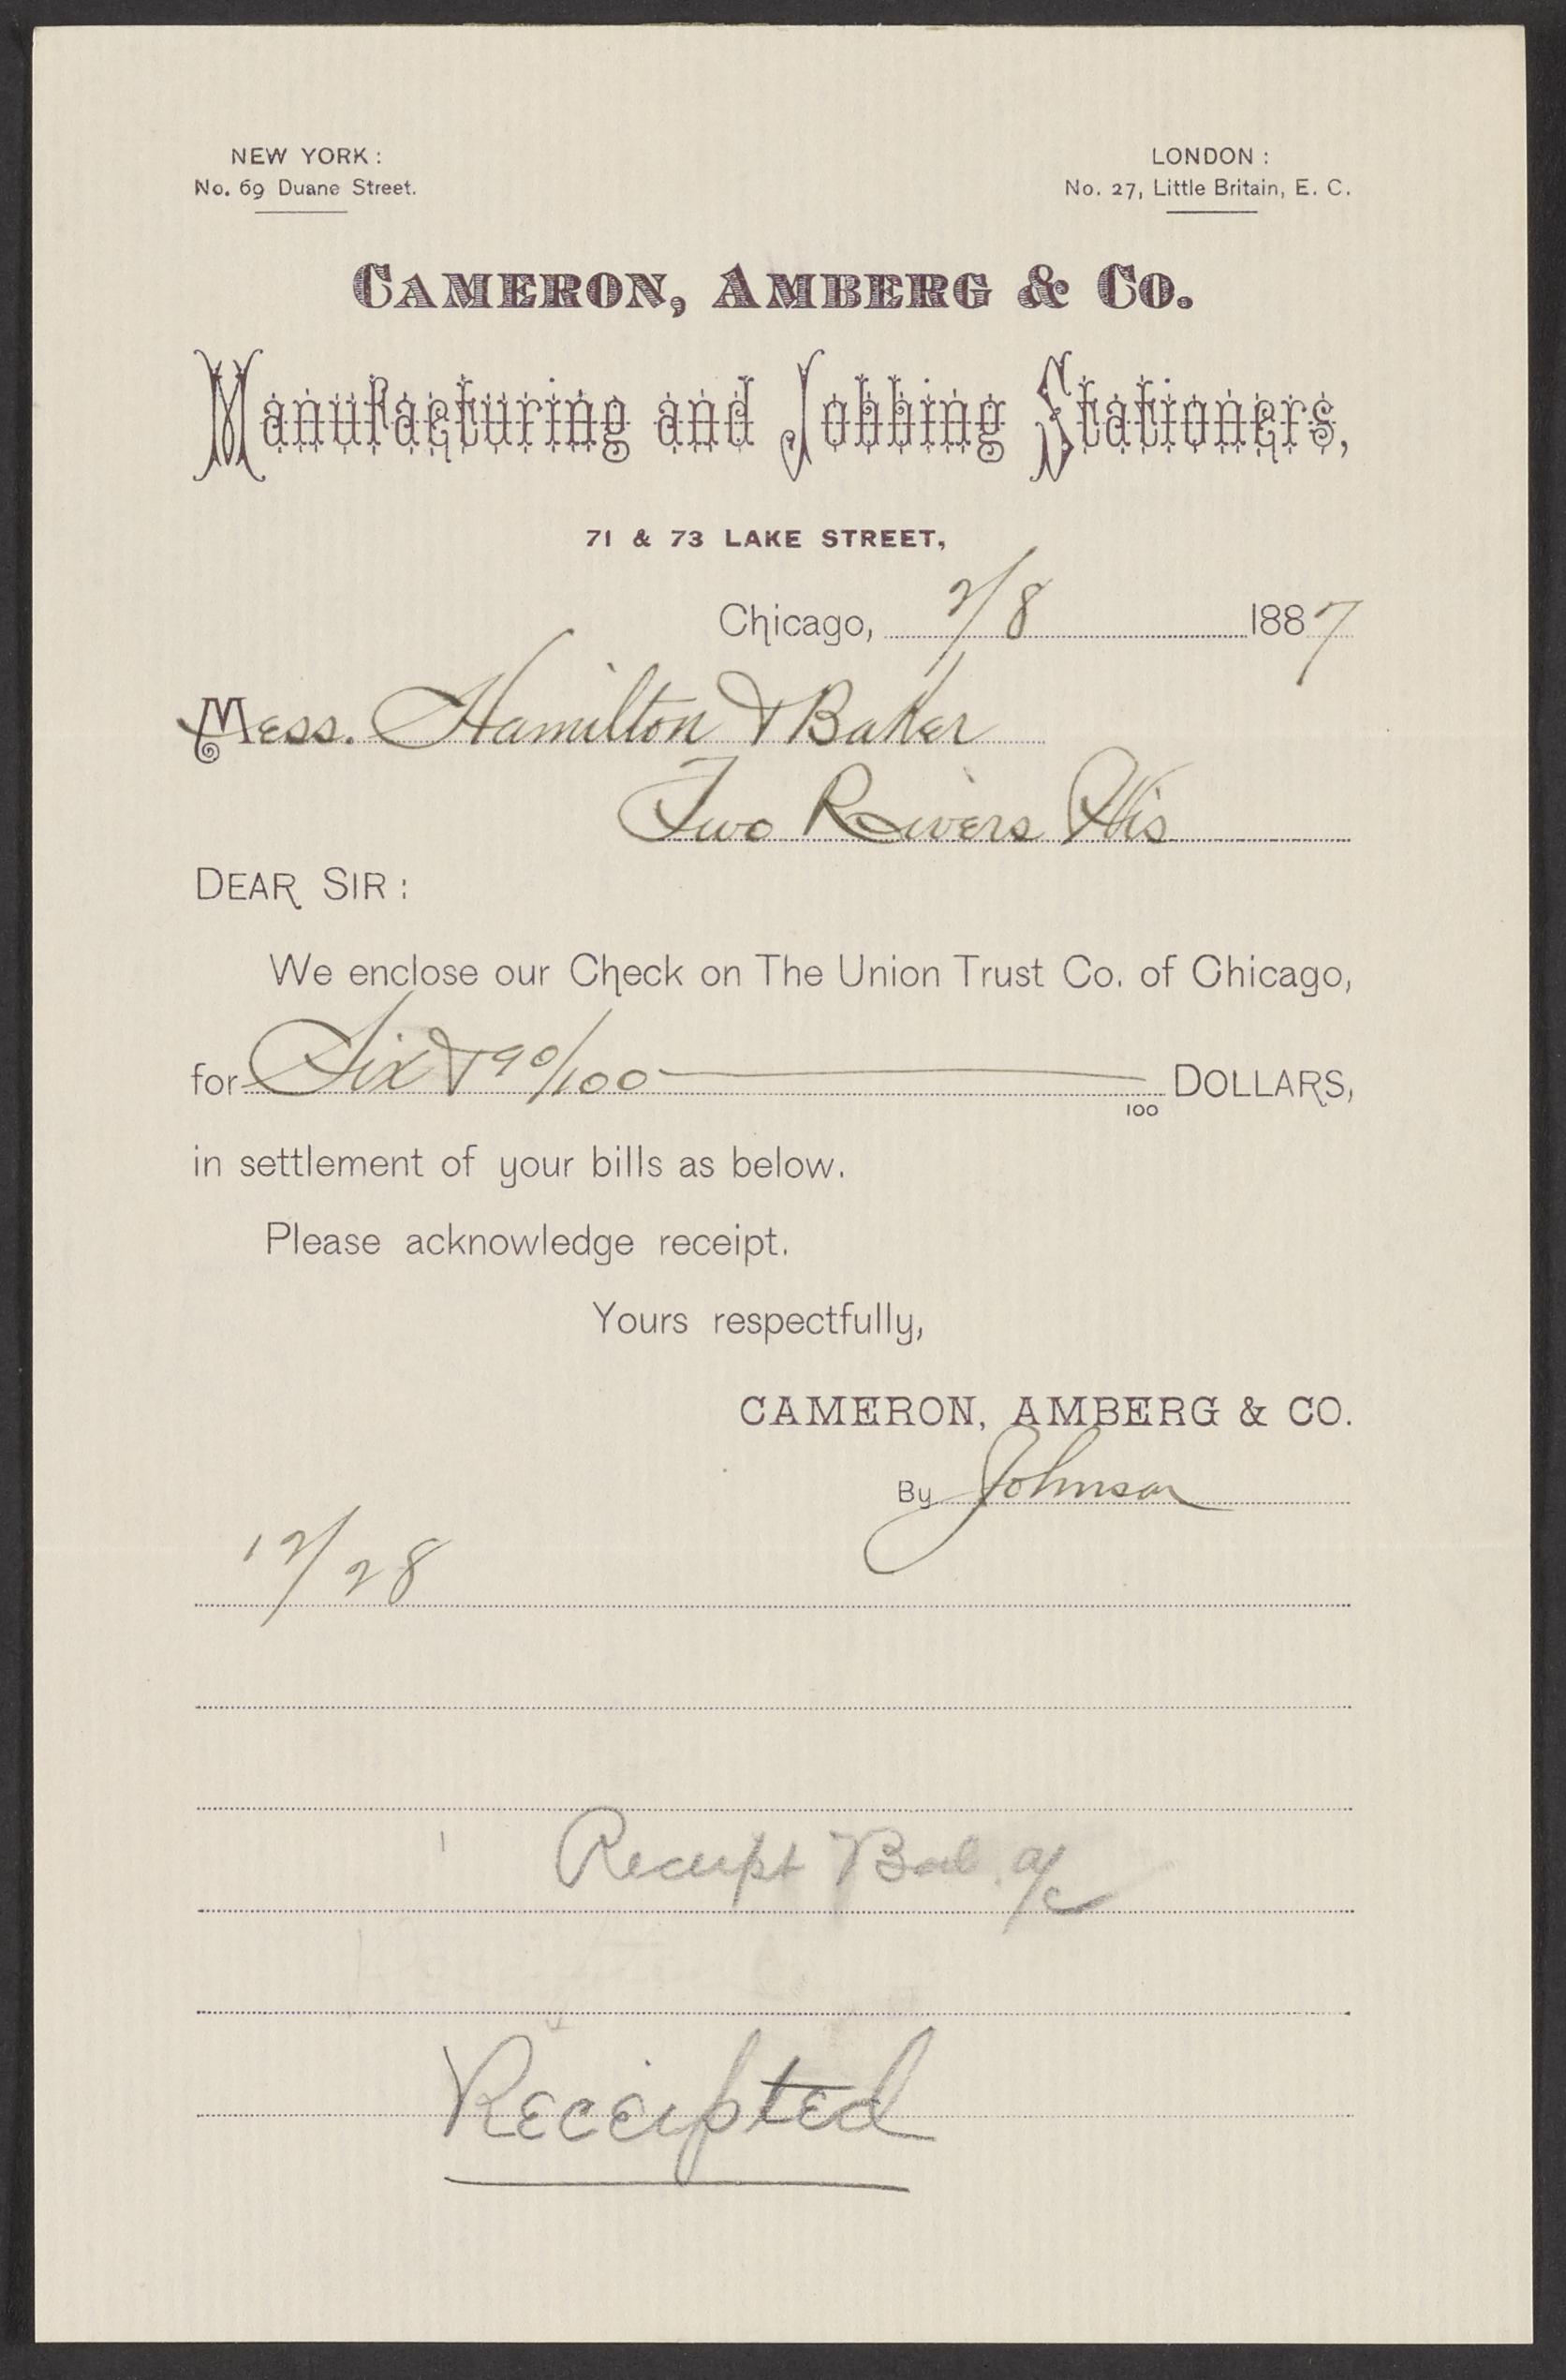 NEW YORK :
No. 69 Duane Street.
LONDON :
No. 27, Little Britain, E. C.
CAMERON, AMBERG & CO.
Manufacturing and Jobbing Stationers,
71 & 73 LAKE STREET,
Chicago, 2/8 1887
Mess. Hamilton & Baker
Two Rivers Wis
DEAR SIR :
We enclose our Check on The Union Trust Co. of Chicago,
for Six & 90/100 100 DOLLARS,
in settlement of your bills as below.
Please acknowledge receipt.
Yours respectfully,
CAMERON, AMBERG & CO.
By Johnson
12/28
Receipt Bal a/c
Receipted